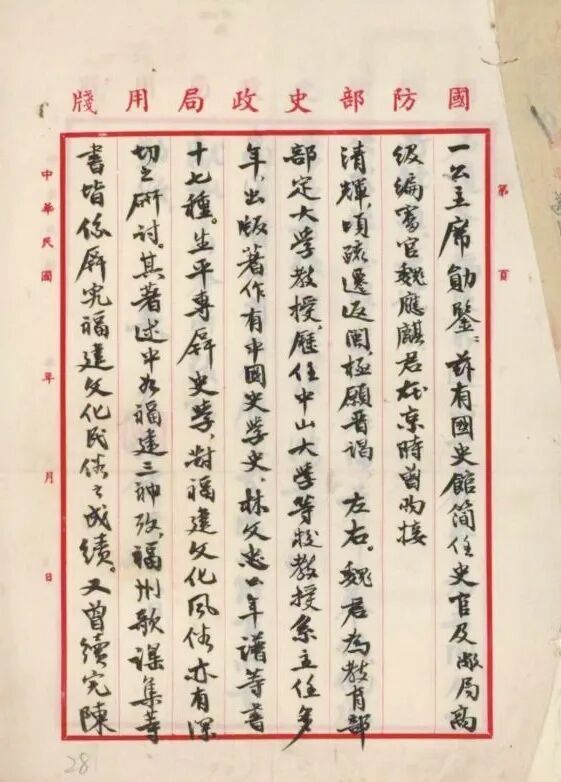 國防部史政局用牋
第 頁
一公主席勛鑒：茲有國史館簡任史官及敝局高
級編審官魏應麒君在京時曾內接
清輝，頃疏遷返閩，極願晋謁 左右。魏君為教育部
部定大学教授，歷任中山大学等校教授系主任多
年，出版著作有中國史学史、林文忠公年譜等書
十七種。生平專研史学，對福建文化風俗亦有深
切之研讨。其著述中如福建三神攷，福州歌謠集等
書皆係研究福建文化民俗之成績。又曾續完陳
中華民國 年 月 日
28